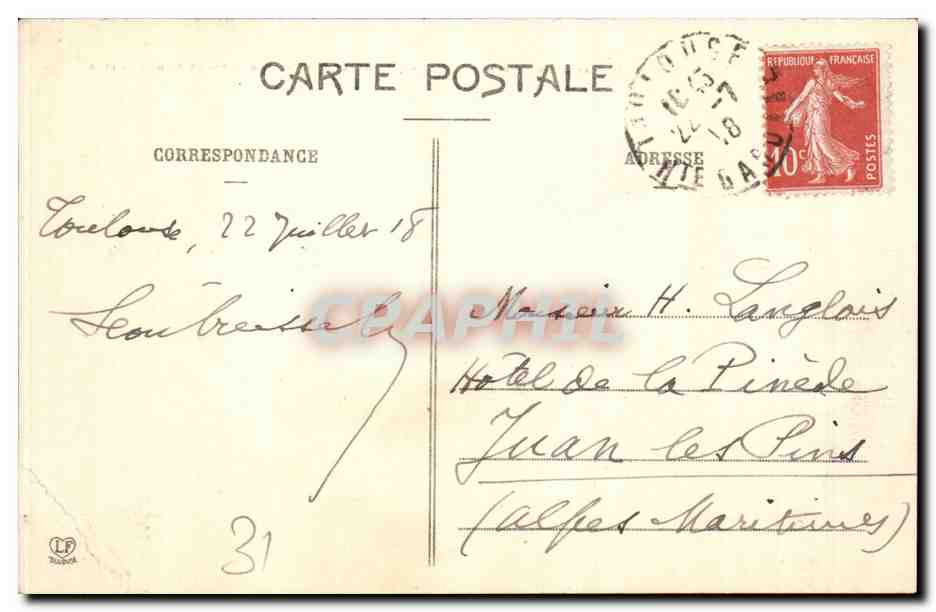 CARTE POSTALE
TOULOUSE
16 45
22 -7
18
HTE GARONNE
REPUBLIQUE FRANÇAISE
10c
POSTES
CORRESPONDANCE
ADRESSE
Toulouse, 22 Juillet 18
CPAPHIL
Monsieur H. Langlois
Hôtel de la Pinède
Juan les Pins
(Alpes Maritimes)
31
LF
TOULOUSE